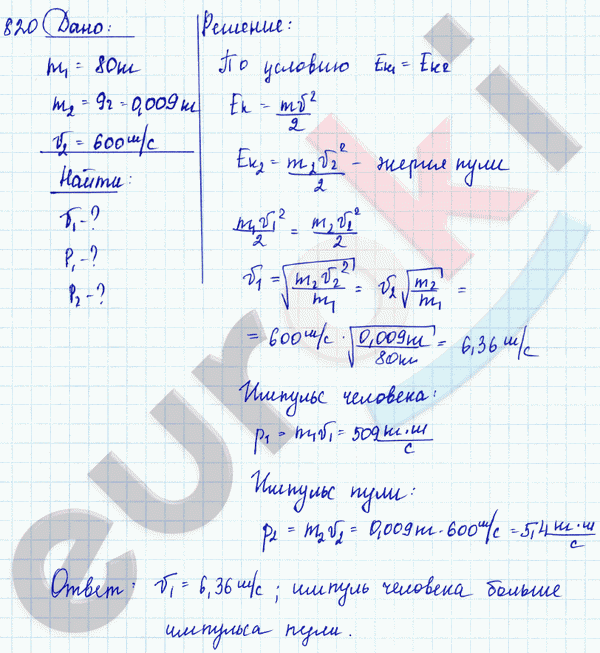 820 Дано:
m₁ = 80кг
m₂ = 9г = 0,009 кг
v₂ = 600 м/с
Найти:
v₁ - ?
P₁ - ?
P₂ - ?
Решение:
По условию Eк₁ = Eк₂
Eк = mv²/2
Eк₂ = m₂v₂²/2 - энергия пули
m₁v₁²/2 = m₂v₂²/2
v₁ = √(m₂v₂²/m₁) = v₂√(m₂/m₁) =
= 600 м/с · √(0,009кг/80кг) = 6,36 м/с
Импульс человека:
p₁ = m₁v₁ = 509 кг·м/с
Импульс пули:
p₂ = m₂v₂ = 0,009кг · 600 м/с = 5,4 кг·м/с
Ответ: v₁ = 6,36 м/с; импуль человека больше
импульса пули.
euroki